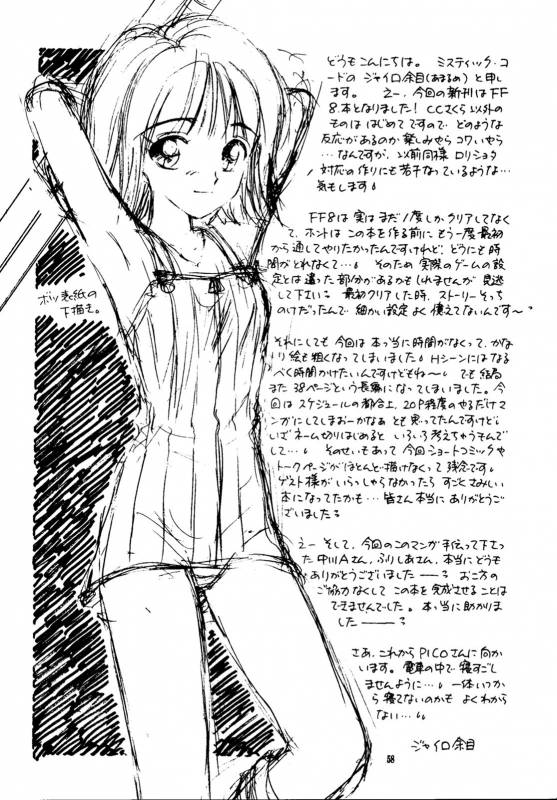 どうもこんにちは。ミスティック・コ
ードの ジャイロ余目(あまるめ)と申し
ます。えー、今回の新刊はFF
8本となりました！CCさくら以外の
ものは はじめて ですので、どのような
反応があるのか 楽しみやら コワいやら
…なんですが、以前同様 ロリショタ
対応の作りにも若干なっているような…
気もします。
FF8は 実は まだ1度しかクリアしてなく
て、ホントは この本を作る前に もう一度最初
から通してやりたかったんですけれど、どうにも時
間がとれなくて…。そのため 実際のゲームの設
定とは違った部分があるかもしれませんが 見逃
して下さい。最初クリアした時、ストーリーそっち
のけだったんで 細かい設定 よく憶えてないんです～
ボツ表紙の
下描き。
それにしても 今回は 本っ当に時間がなくって、かな
り絵も粗くなってしまいました。Hシーンには なる
べく時間かけたいんですけどもね～。でも結局
また 38ページという長編になってしまいました。今
回は スケジュールの都合上、20P程度の やるだけマ
ンガにしてしまおーかなぁ とも思ってたんですけど、
いざ ネーム切りはじめると いろいろ考えちゃうもんで
して…。そのせいもあって 今回ショートコミックや
トークページが ほとんど描けなくって 残念です。
ゲスト様が いらっしゃらなかったら すごくさみしい
本になってたかも… 皆さん本当に ありがとうご
ざいました。
えー そして、今回の このマンガ 手伝って下さった
中川Aさん、ふりしあさん、本当に どうも
ありがとうございました——。お二方の
ご協力なくして この本を完成させることは
できませんでした。本っ当に助かりま
した———。
さぁ、これから PICOさんに向か
います。電車の中で 寝すごし
ませんように…。一体いつか
ら 寝てないのかも よくわから
ない…。
ジャイロ余目
58